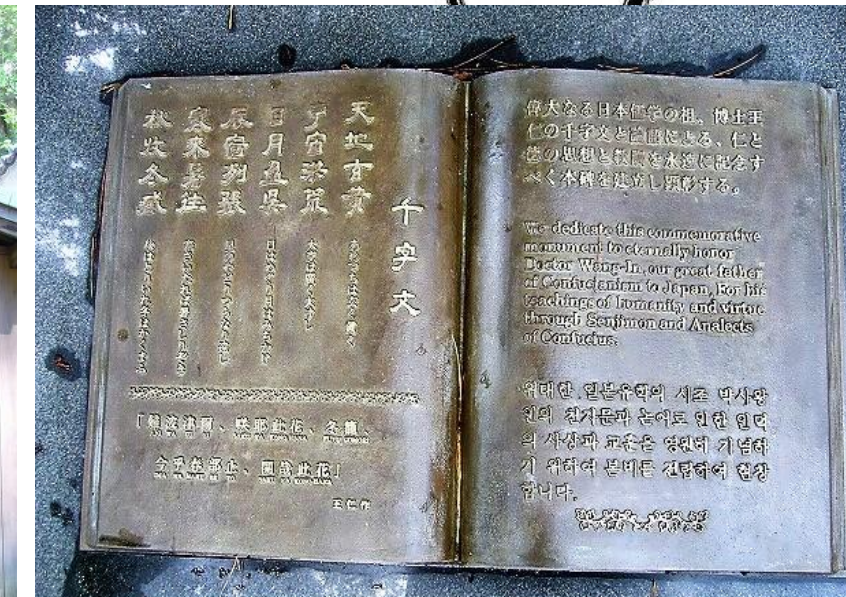 千字文
天地玄黄
宇宙洪荒
日月盈昃
辰宿列張
寒来暑往
秋收冬蔵
「難波津爾、咲耶此花、冬籠、
今乎春部止、開哉此花」
王仁作
偉大なる日本儒学の祖、博士王
仁の千字文と論語による、仁と
徳の思想と教訓を永遠に記念す
べく本碑を建立し顕彰する。
We dedicate this commemorative
monument to eternally honor
Doctor Wang-In, our great father
of Confucianism to Japan, For his
teachings of humanity and virtue
through Senjimon and Analects
of Confucius.
위대한 일본유학의 시조 박사왕
인의 천자문과 논어로 인한 인덕
의 사상과 교훈을 영원히 기념하
기 위하여 본비를 건립하여 현창
합니다.